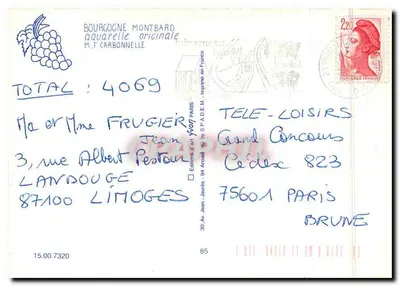 BOURGOGNE MONTBARD
aquarelle originale
M.F CARBONNELLE
TOTAL: 4069
Mr et Mme FRUGIER
Jean
3, rue Albert Pestour
LANDOUGE
87100 LIMOGES
15.00.7320
Editions d'art YVON PARIS
30, Av. Jean-Jaurès - 94 Arcueil
S.P.A.D.E.M. - Imprimé en France
85
2,20
REPUBLIQUE FRANCAISE
TELE-LOISIRS
Grand Concours
Cédex 823
75601 PARIS
BRUNE